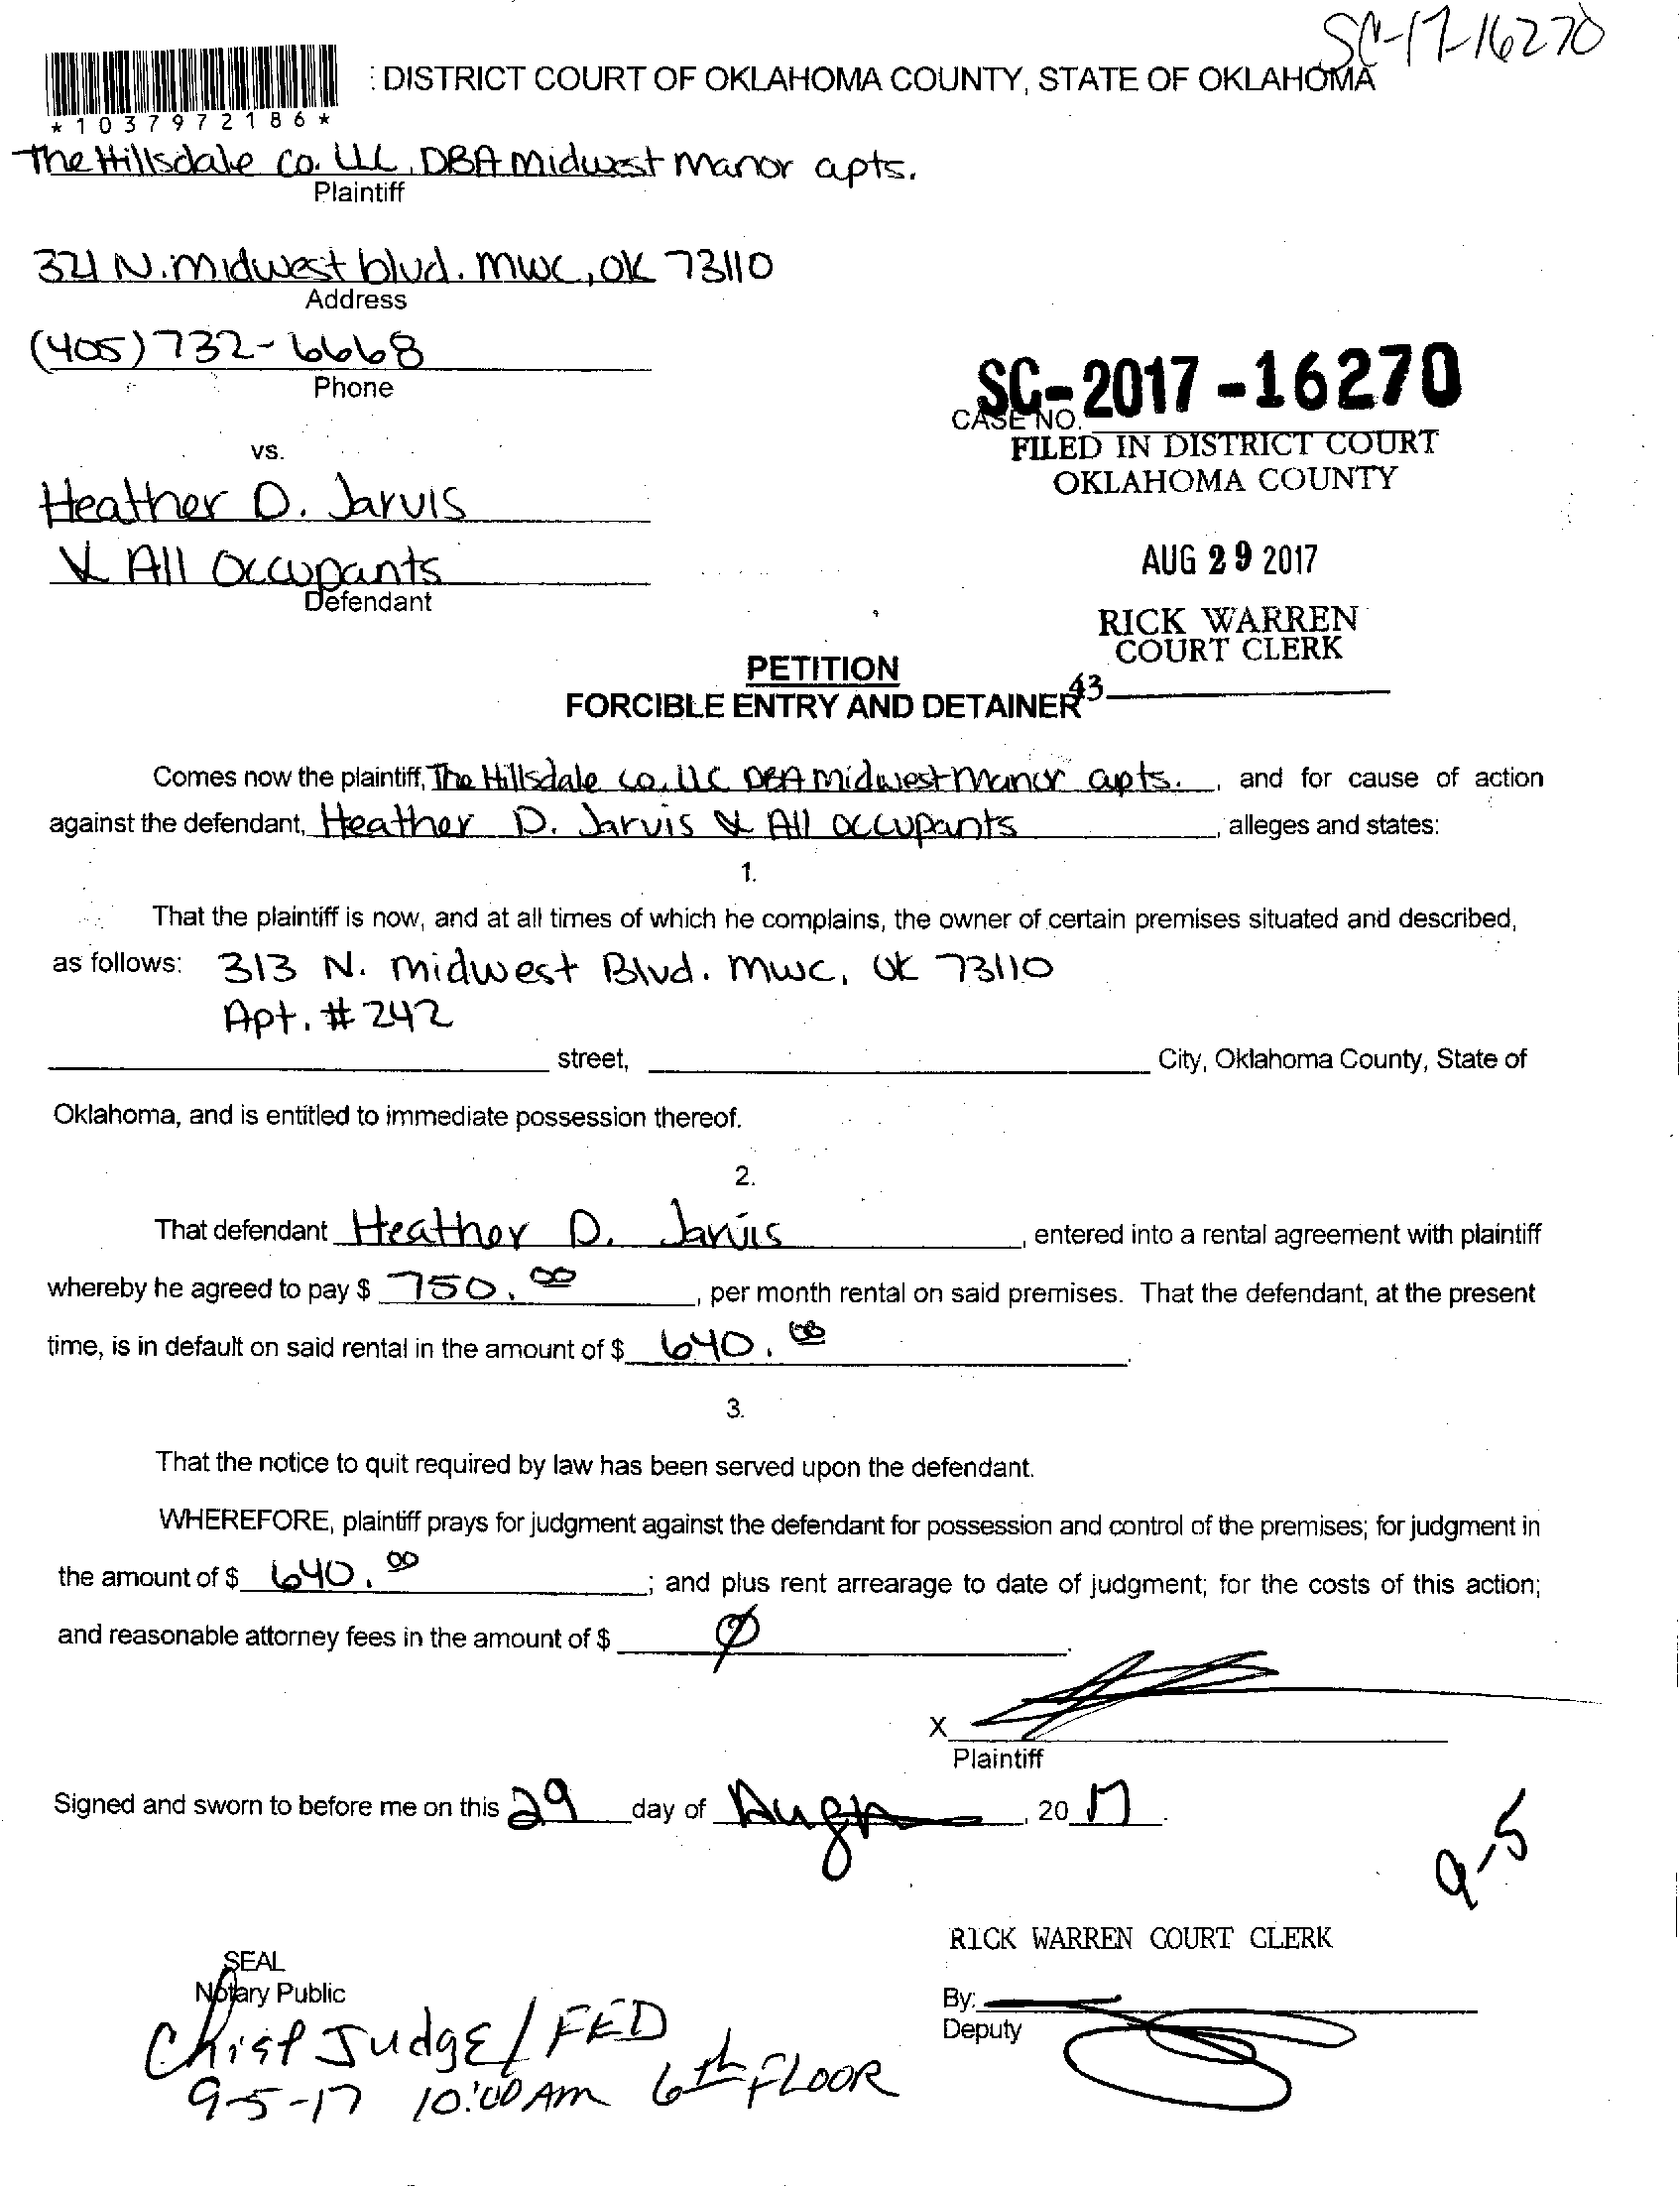 SC-17-16270
: DISTRICT COURT OF OKLAHOMA COUNTY, STATE OF OKLAHOMA
*1037972186*
The Hillsdale Co. LLC, DBA Midwest Manor apts.
Plaintiff
321 N. Midwest blvd. MWC, OK 73110
Address
(405) 732-6668
Phone
SC-2017-16270
CASE NO.
FILED IN DISTRICT COURT
OKLAHOMA COUNTY
vs.
Heather D. Jarvis
& All Occupants
Defendant
AUG 29 2017
RICK WARREN
COURT CLERK
43
PETITION
FORCIBLE ENTRY AND DETAINER
Comes now the plaintiff, The Hillsdale Co. LLC DBA Midwest Manor apts. , and for cause of action
against the defendant, Heather D. Jarvis & All occupants , alleges and states:
1.
That the plaintiff is now, and at all times of which he complains, the owner of certain premises situated and described,
as follows: 313 N. Midwest Blvd. MWC, OK 73110
Apt. # 242
street, City, Oklahoma County, State of
Oklahoma, and is entitled to immediate possession thereof.
2.
That defendant Heather D. Jarvis , entered into a rental agreement with plaintiff
whereby he agreed to pay $ 750.00 , per month rental on said premises. That the defendant, at the present
time, is in default on said rental in the amount of $ 640.00 .
3.
That the notice to quit required by law has been served upon the defendant.
WHEREFORE, plaintiff prays for judgment against the defendant for possession and control of the premises; for judgment in
the amount of $ 640.00 ; and plus rent arrearage to date of judgment; for the costs of this action;
and reasonable attorney fees in the amount of $ Ø .
X
Plaintiff
Signed and sworn to before me on this 29 day of Aug , 20 17 .
9-5
RICK WARREN COURT CLERK
SEAL
Notary Public
By:
Deputy
Chief Judge / FED
9-5-17 10:00 AM 6th FLOOR